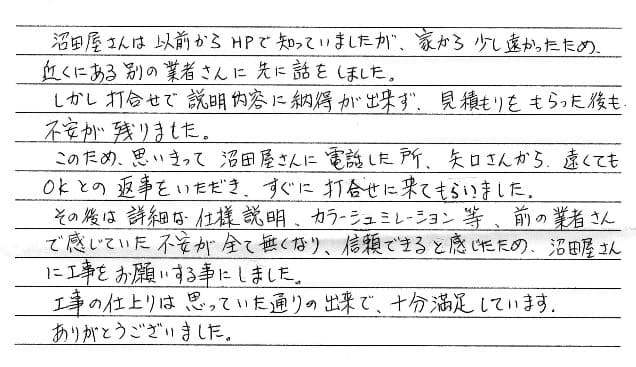 沼田屋さんは以前からHPで知っていましたが、家から少し遠かったため、
近くにある別の業者さんに先に話をしました。
しかし打合せで説明内容に納得が出来ず、見積もりをもらった後も、
不安が残りました。
このため、思いきって沼田屋さんに電話した所、矢口さんから、遠くても
OKとの返事をいただき、すぐに打合せに来てもらいました。
その後は詳細な仕様説明、カラーシュミレーション等、前の業者さん
で感じていた不安が全て無くなり、信頼できると感じたため、沼田屋さん
に工事をお願いする事にしました。
工事の仕上りは思っていた通りの出来で、十分満足しています.
ありがとうございました。